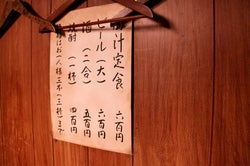 汁定食 六百円
ビール（大） 六百円
酒（二合） 五百円
焼酎（一杯） 四百円
はお一人様三本（三杯）まで